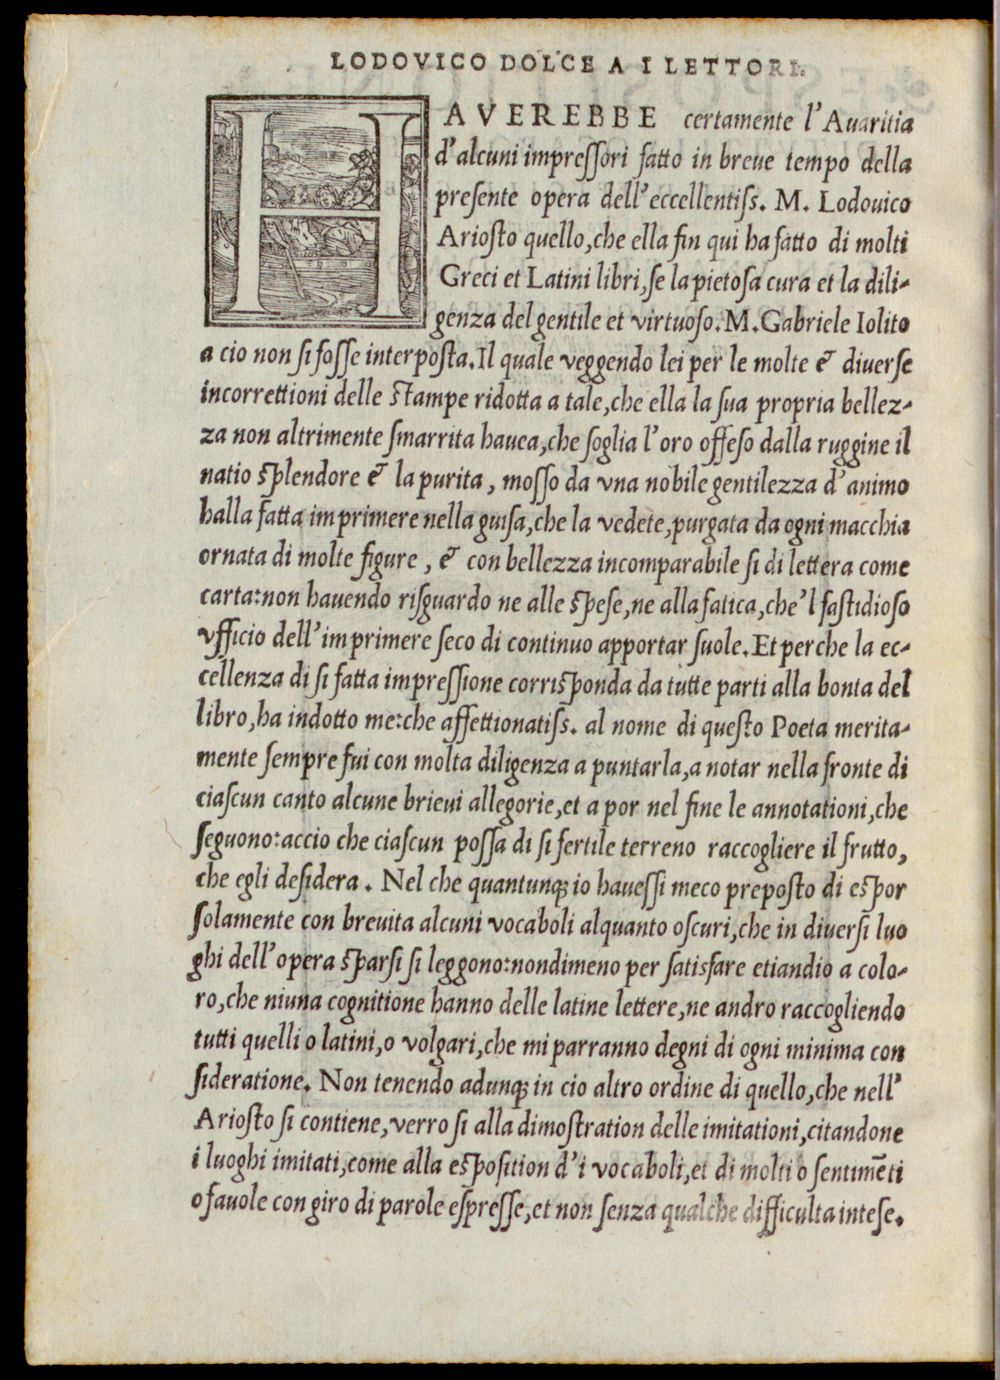 LODOVICO DOLCE A I LETTORI.
HAVEREBBE certamente l'Auaritia
d'alcuni impreſſori fatto in breue tempo della
preſente opera dell'eccellentiſs. M. Lodouico
Arioſto quello,che ella fin qui ha fatto di molti
Greci et Latini libri,ſe la pietoſa cura et la dili-
genza del gentile et virtuoſo.M.Gabriele Iolito
a cio non ſi foſſe interpoſta.Il quale veggendo lei per le molte & diuerſe
incorrettioni delle ſtampe ridotta a tale,che ella la ſua propria bellez-
za non altrimente ſmarrita hauea,che ſoglia l'oro offeſo dalla ruggine il
natio ſplendore & la purita, moſſo da vna nobile gentilezza d'animo
halla fatta imprimere nella guiſa,che la vedete,purgata da ogni macchia
ornata di molte figure, & con bellezza incomparabile ſi di lettera come
carta:non hauendo riſguardo ne alle ſpeſe,ne alla fatica,che'l faſtidioſo
vfficio dell'imprimere ſeco di continuo apportar ſuole.Et perche la ec-
cellenza di ſi fatta impreſſione corriſponda da tutte parti alla bonta del
libro,ha indotto me:che affettionatiſs. al nome di queſto Poeta merita-
mente ſempre fui con molta diligenza a puntarla,a notar nella fronte di
ciaſcun canto alcune brieui allegorie,et a por nel fine le annotationi,che
ſeguono:accio che ciaſcun poſſa di ſi fertile terreno raccogliere il frutto,
che egli deſidera. Nel che quantunqꝫ io haueſſi meco prepoſto di eſpor
ſolamente con breuita alcuni vocaboli alquanto oſcuri,che in diuerſi luo
ghi dell'opera ſparſi ſi leggono:nondimeno per ſatisfare etiandio a colo-
ro,che niuna cognitione hanno delle latine lettere,ne andro raccogliendo
tutti quelli o latini,o volgari,che mi parranno degni di ogni minima con
ſideratione. Non tenendo adunqꝫ in cio altro ordine di quello,che nell'
Arioſto ſi contiene,verro ſi alla dimoſtration delle imitationi,citandone
i luoghi imitati,come alla eſpoſition d'i vocaboli,et di molti o ſentimēti
o fauole con giro di parole eſpreſſe,et non ſenza qualche difficulta inteſe.